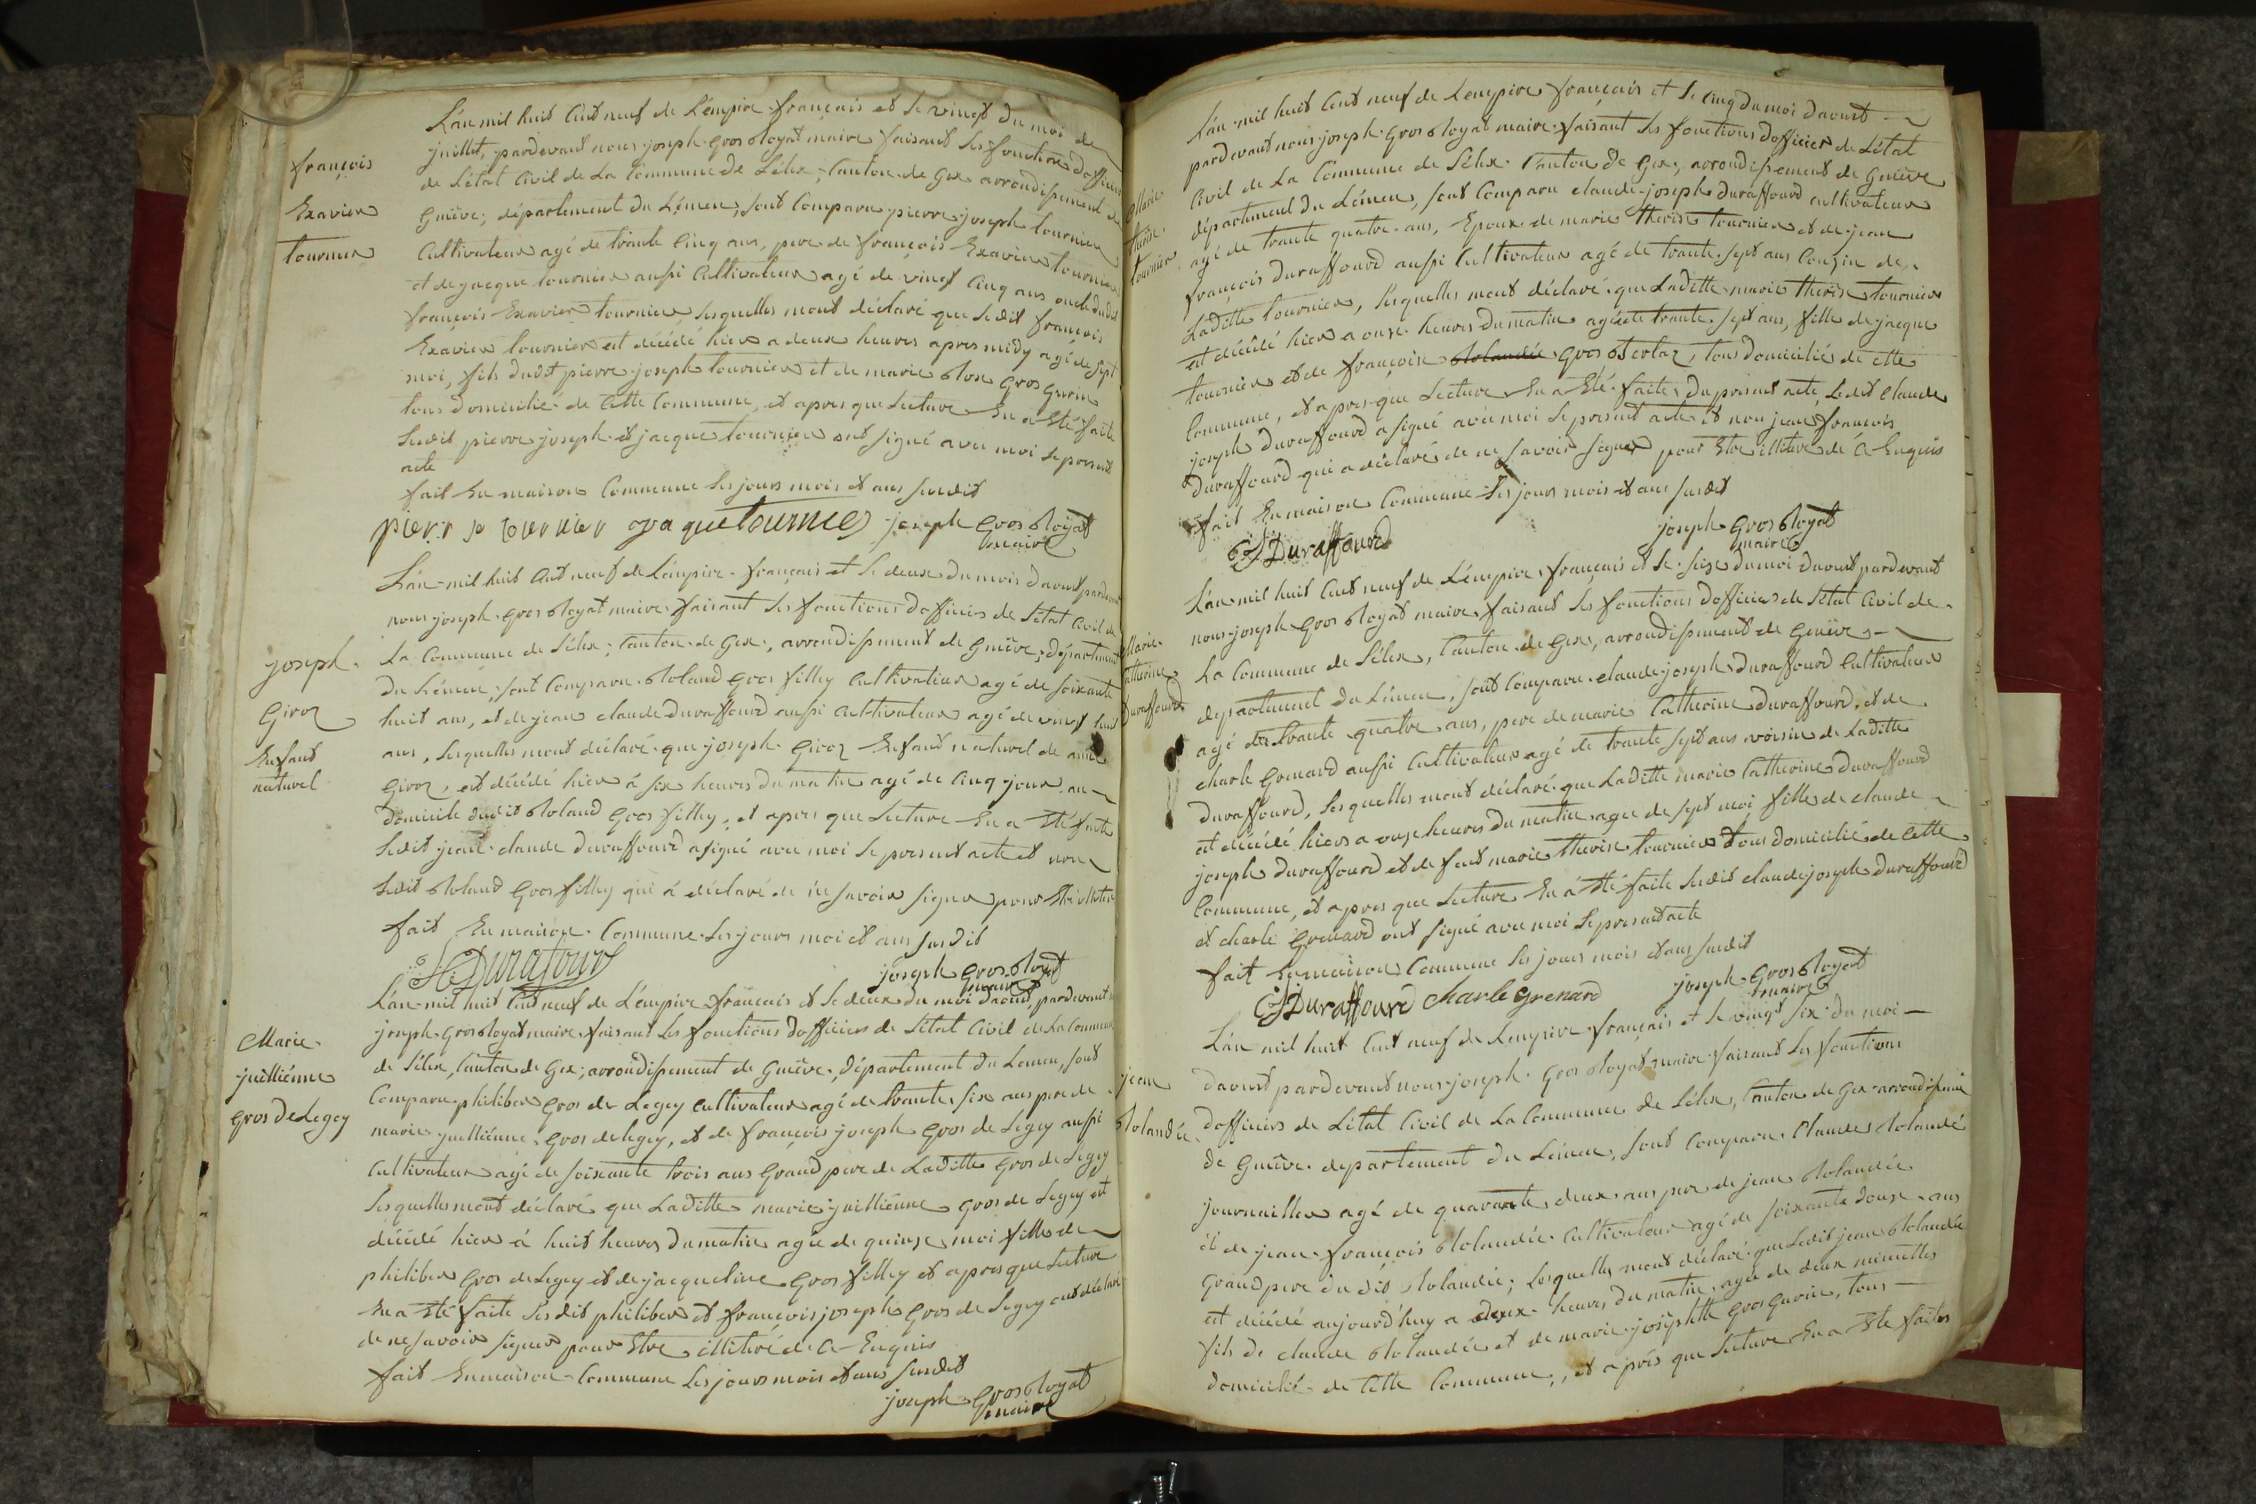 françois
Exavier
tournier
L'an mil huit Cent neuf de L'empire français et le vingt du moi de
juillet, pardevant nous joseph gros Royat maire faisant les fonctions d'officier
de L'état Civil de La Commune de Lélex; Canton de Gex arrondissement de
Genève; département du Léman, sont Comparu pierre joseph tournier
Cultivateur agé de trante Cinq ans, pere de françois Exavier tournier
et de jacque tournier aussi Cultivateur agé de vingt Cinq ans oncle dudit
françois Exavier tournier, lesquelles mont déclaré que ledit françois
Exavier tournier est décédé hier a deux heures apres midy agé de sept
moi, fils dudit pierre joseph tournier et de marie Rose gros gurin
tous domicilié de Cette Commune, et apres que lecture En a Eté faite
ledit pierre joseph et jacque tournier ont signé avec moi le present
acte
fait En maison Commune les jours mois et ans susdit
pierr jo tournier jaque tournier joseph gros Royat
maire
joseph
Giroz
Enfant
naturel
L'an mil huit Cent neuf de L'empire français et le deux du mois daoust pardevant
nous joseph gros Royat maire faisant les fonctions d'officier de L'état Civil de
La Commune de Lélex; Canton de Gex, arrondissement de Genève; département
du Léman; sont Comparu Roland gros filley Cultivateur agé de soixante
huit ans, et de jean claude duraffourd aussi Cultivateur agé de vingt huit
ans, lesquelles mont déclaré que joseph Giroz Enfant naturel de
Giroz, est décédé hier à six heures du matin agé de Cinq jour au
domicile dudit Roland gros filley, et apres que lecture En a Eté faite
ledit jean claude duraffourd a signé avec moi le present acte et non
ledit Roland gros filley qui à déclaré de ne savoir signer pour Etre illiteré
fait En maison Commune les jours moi et ans susdit
JC Durafour joseph gros Royat
maire
Marie
juilliénne
gros de Legey
L'an mil huit Cent neuf de L'empire français et le deux du moi daoust, pardevant
joseph gros Royat maire faisant les fonctions d'officier de L'état Civil de La Commune
de Lélex, Canton de Gex; arrondissement de Genève, département du Leman, sont
Comparu philiber gros de Legey Cultivateur agé de trante six ans pere de
marie juilliénne gros de legey, et de françois joseph gros de Legey aussi
Cultivateur agé de soixante trois ans grand pere de Laditte gros de Legey
lesquelles mont déclaré que Laditte marie juilliénne gros de Legey est
décédé hier à huit heures du matin agée de quinze moi fille de
philiber gros de Legey et de jacqueline gros filley et apres que lecture
En a Eté faite lesdit philiber et françois joseph gros de Legey ont déclaré
de ne savoir signer pour Etre illitéré de Ce Enquis
fait En maison Commune les jours mois et ans susdit
joseph gros Royat
maire
Marie
therèse
tournier
L'an mil huit Cent neuf de L'empire français et le Cinq du moi daoust
pardevant nous joseph gros Royat maire faisant les fonctions d'officier de L'état
Civil de La Commune de Lélex Canton de Gex, arrondissement de Genève
département du Léman, sont Comparu claude joseph duraffourd cultivateur
agé de trante quatre ans, Epoux de marie therèse tournier et de jean
françois duraffourd aussi Cultivateur agé de trante sept ans Couzin de
Laditte tournier, lesquelles mont déclaré que Laditte marie therèse tournier
est décédé hier a onze heures du matin agée de trante sept ans, fille de jacque
tournier et de françoise Rolandéz gros tous domiciliés de Cette
Commune, et apres que Lecture En a Eté faite du present acte, Ledit Claude
joseph duraffourd a signé avec moi le present acte et non jean françois
duraffourd qui a déclaré de ne savoir signer pour Etre illitéré de Ce Enquis
fait En maison Commune les jours mois et ans susdit
CJ Duraffourd joseph gros Royat
maire
Marie
Catherine
duraffourd
L'an mil huit Cent neuf de L'empire français et le six du moi daoust pardevant
nous joseph gros Royat maire faisant les fonctions d'officier de L'état Civil de
La Commune de Lélex, Canton de Gex, arrondissement de Genève
département du Léman, sont Comparu claude joseph duraffourd Cultivateur
agé de trante quatre ans, pere de marie Catherine duraffourd, et de
charle grenard aussi Cultivateur agé de trante sept ans voisin de Laditte
duraffourd, lesquelles mont déclaré que Laditte marie Catherine duraffourd
est décédé hier a onze heures du matin agée de sept moi fille de claude
joseph duraffourd et de feut marie therèse tournier tous domicilié de Cette
Commune, et apres que lecture En à Eté faite ledit claude joseph duraffourd
et charle grenard ont signé avec moi le present acte
fait En maison Commune les jours mois et ans susdit
CJ Duraffourd charle grenard joseph gros Royat
maire
jean
Rolandéz
L'an mil huit Cent neuf de L'empire français et le vingt six du moi
daoust pardevant nous joseph gros Royat maire faisant les fonctions
d'officier de L'état Civil de La Commune de Lélex, Canton de Gex arrondissement
de Genève département du Léman, sont Comparu Claude Rolandéz
journaillier agé de quarante deux ans pere de jean Rolandéz
et de jean françois Rolandéz Cultivateur agé de soixante douze ans
grand pere du dit Rolandéz; lesquelles mont déclaré que Ledit jean Rolandéz
est décédé aujourd'huy a deux heures du matin, agée de deux minuttes
fils de claude Rolandéz et de marie josephtte gros gurin, tous
domicilié de Cette Commune, et apres que lecture En a Eté faites